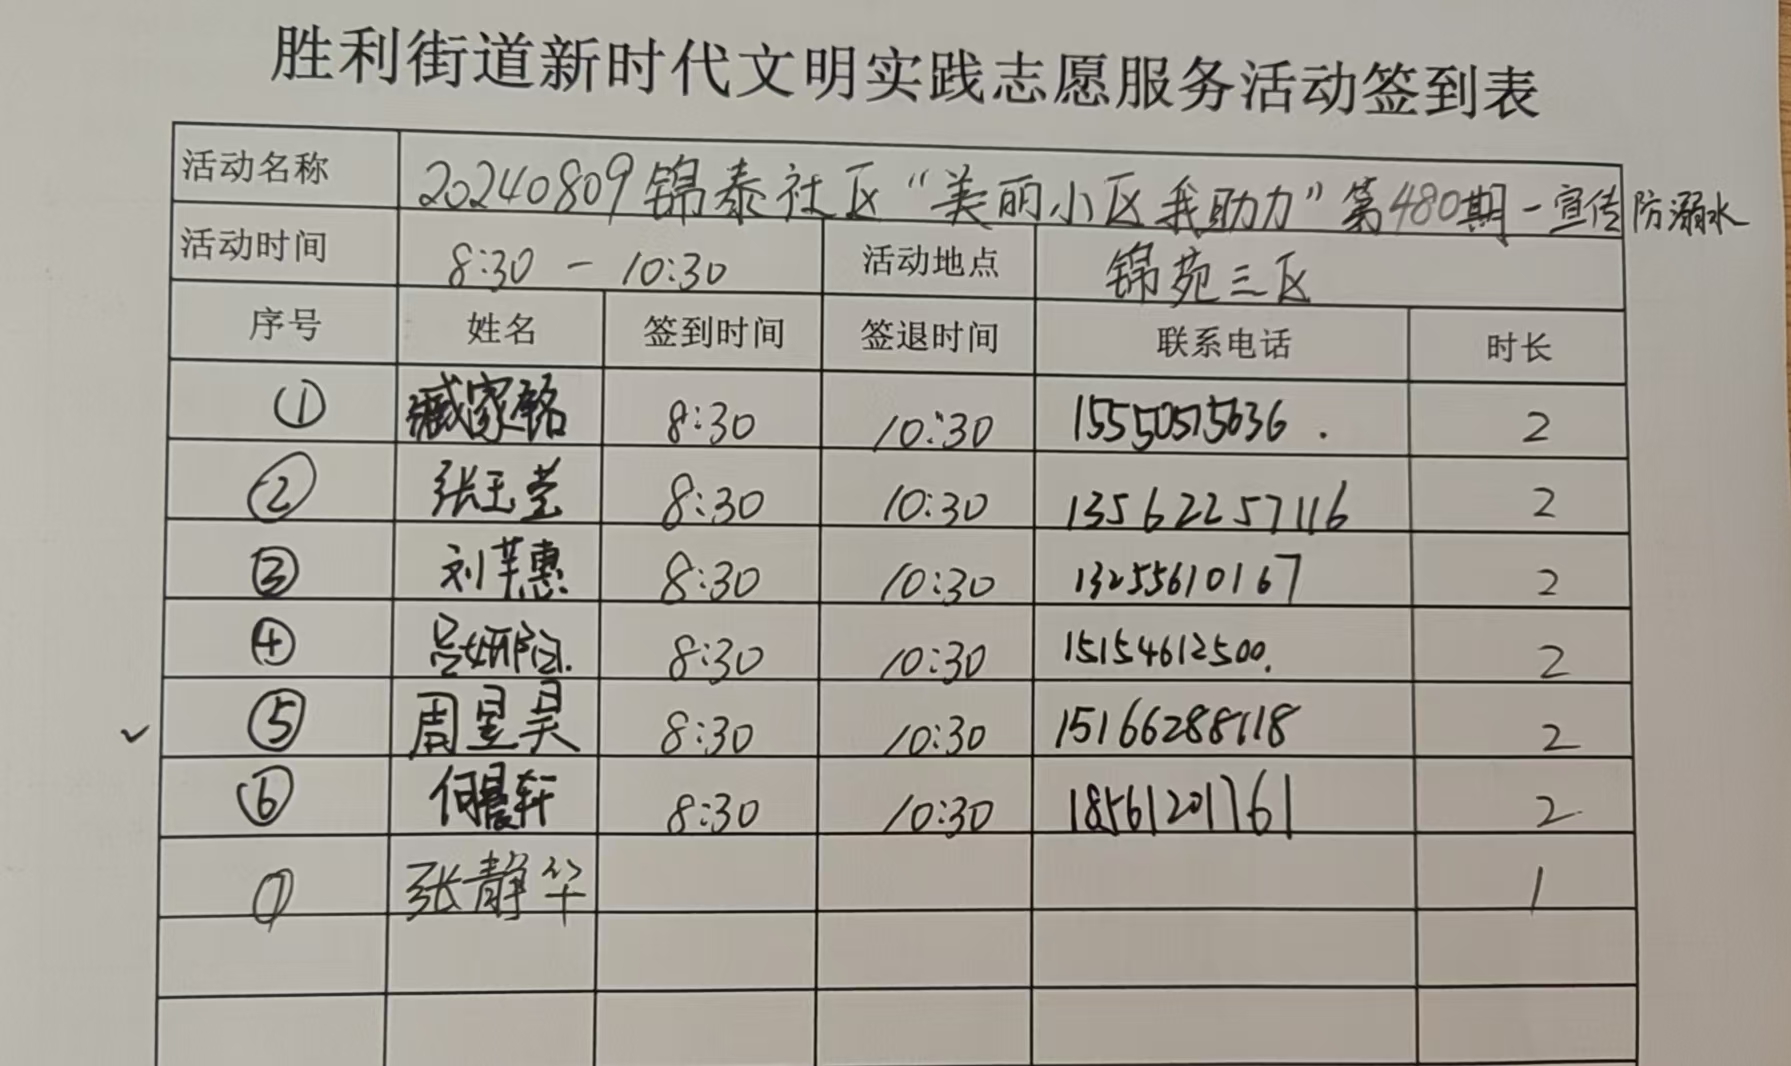 胜利街道新时代文明实践志愿服务活动签到表
活动名称 20240809锦泰社区“美丽小区我助力”第480期-宣传防溺水
活动时间 8:30-10:30 活动地点 锦苑三区
序号 姓名 签到时间 签退时间 联系电话 时长
① 臧家铭 8:30 10:30 15550515636. 2
② 张玉莹 8:30 10:30 13562257116 2
③ 刘芊惠 8:30 10:30 13255610167 2
④ 吕妍 8:30 10:30 15154612500. 2
✓ ⑤ 周昱昊 8:30 10:30 15166288118 2
⑥ 何晨轩 8:30 10:30 18561201761 2
⑦ 张静华 1